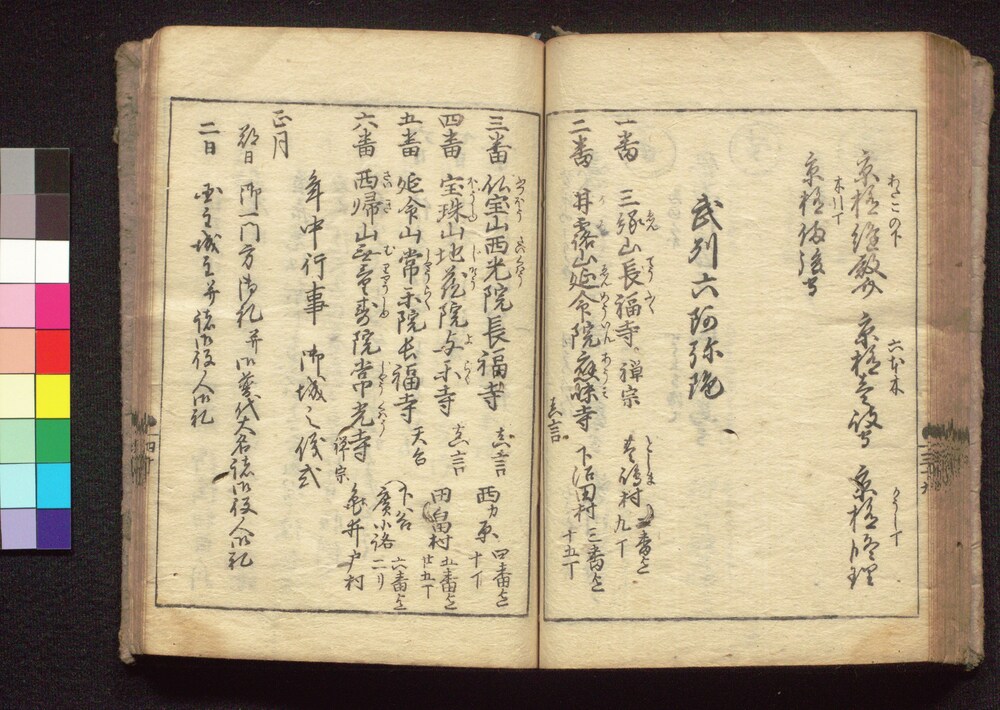 京極
京極
京極修理
六本木
京極
武州六阿弥陀
一番 三縁山長福寺 禅宗 豊嶋村 二番迄
九丁
二番 甘露山延命院應味寺 真言 下沼田村 三番迄
十五丁
三番 仏宝山西光院長福寺 真言 西ヶ原 四番迄
十丁
四番 宝珠山地蔵院与楽寺 真言 田畠村 五番迄
廿五丁
五番 延命山常楽院長福寺 天台 下谷
廣小路 六番迄
二り
六番 西帰山無量寿院常光寺 禅宗 亀井戸村
年中行事 御城之儀式
正月
朔日 御一門方御礼并御譜代大名諸御役人御礼
二日 国主城主并諸御役人御礼